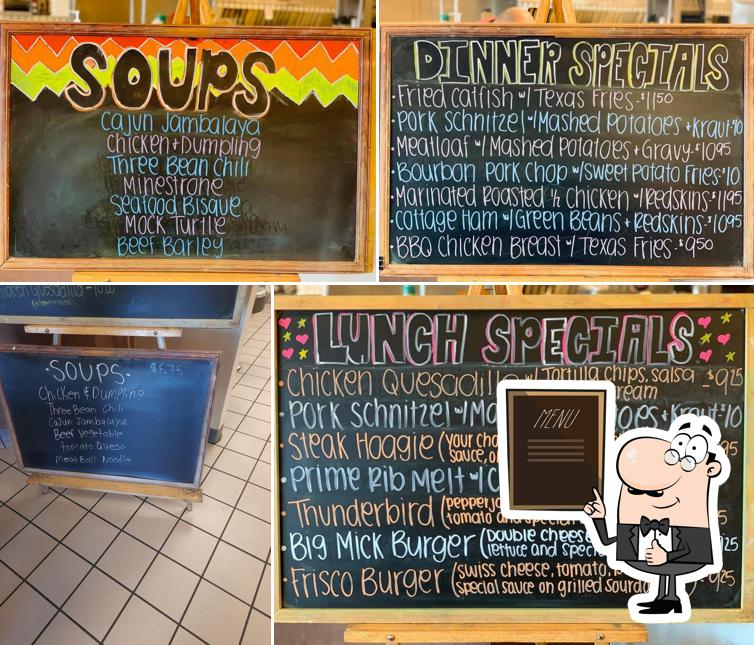 SOUPS
Cajun Jambalaya
Chicken + Dumpling
Three Bean Chili
Minestrone
Seafood Bisque
Mock Turtle
Beef Barley
DINNER SPECIALS
• Fried Catfish w/ Texas Fries - $11.50
• Pork Schnitzel w/ Mashed Potatoes + Kraut - $10
• Meatloaf w/ Mashed Potatoes + Gravy - $10.95
• Bourbon Pork Chop w/ Sweet Potato Fries - $10
• Marinated Roasted ½ Chicken w/ Redskins - $11.95
• Cottage Ham w/ Green Beans + Redskins - $10.95
• BBQ Chicken Breast w/ Texas Fries - $9.50
Quesadilla - 10.00
• SOUPS • $5.75
Chicken & Dumpling
Three Bean Chili
Cajun Jambalaya
Beef Vegetable
Tomato Queso
Meat Ball Noodle
LUNCH SPECIALS
• Chicken Quesadilla w/ Tortilla Chips, salsa - $9.25
• Pork Schnitzel w/ + Kraut - $10
• Steak Hoagie (your
sauce,
• Prime Rib Melt w/
• Thunderbird (pepperjack
tomato and special
• Big Mick Burger (Double cheese
lettuce and
• Frisco Burger (swiss cheese, tomato,
special sauce on grilled
MENU